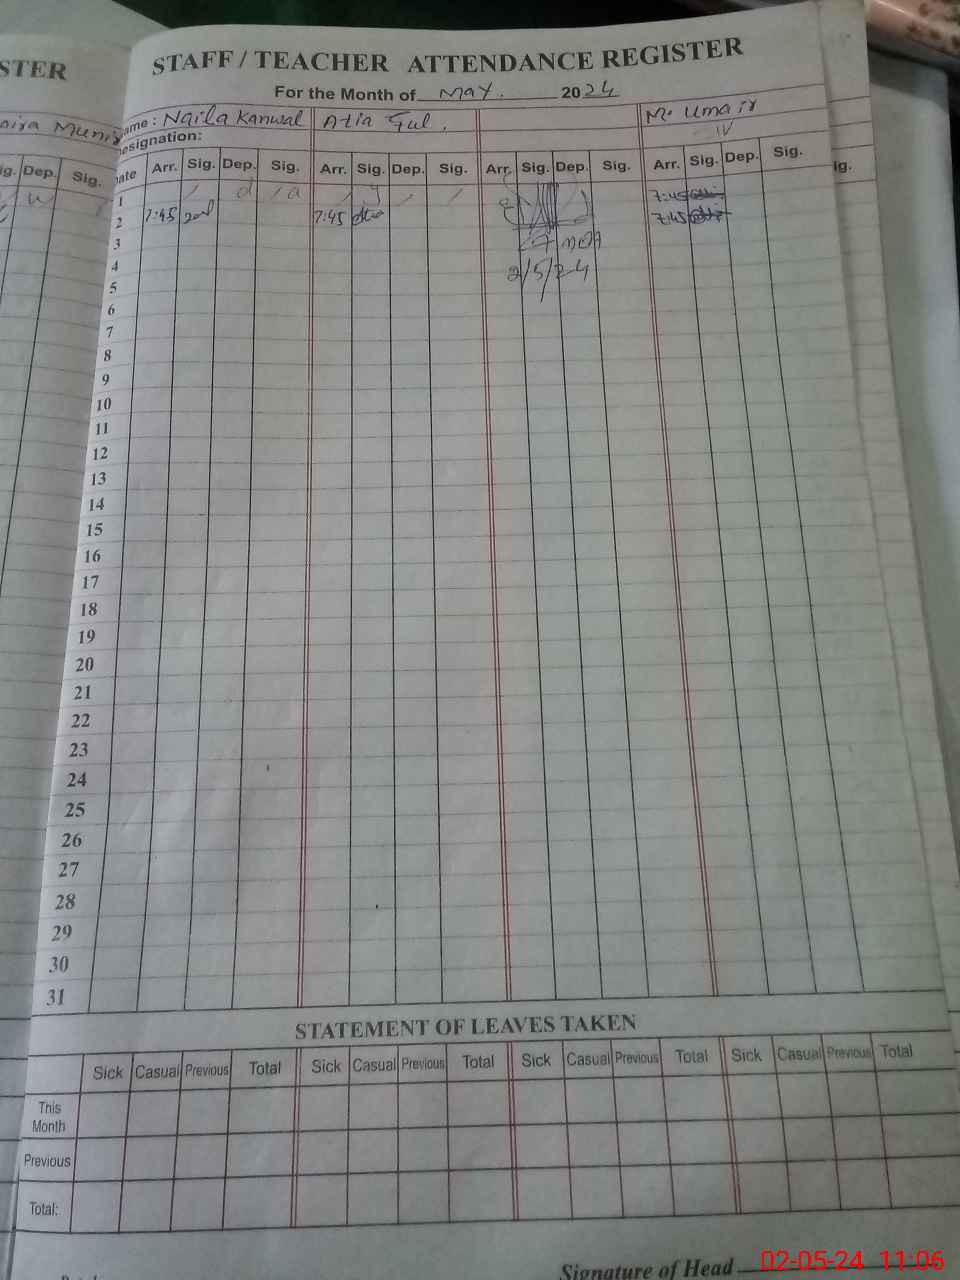 STER
STAFF / TEACHER ATTENDANCE REGISTER
For the Month of May. 2024
aira Munir
ame : Naila Kanwal Atia Gul. M. Umair
esignation: IV
ig. Dep. Sig.
ate Arr. Sig. Dep. Sig. Arr. Sig. Dep. Sig. Arr. Sig. Dep. Sig. Arr. Sig. Dep. Sig. ig.
1 7:45
2 7:45 7:45 7:45
3
4 2/5/24
5
6
7
8
9
10
11
12
13
14
15
16
17
18
19
20
21
22
23
24
25
26
27
28
29
30
31
STATEMENT OF LEAVES TAKEN
Sick Casual Previous Total Sick Casual Previous Total Sick Casual Previous Total Sick Casual Previous Total
This
Month
Previous
Total:
Signature of Head
02-05-24 11:06